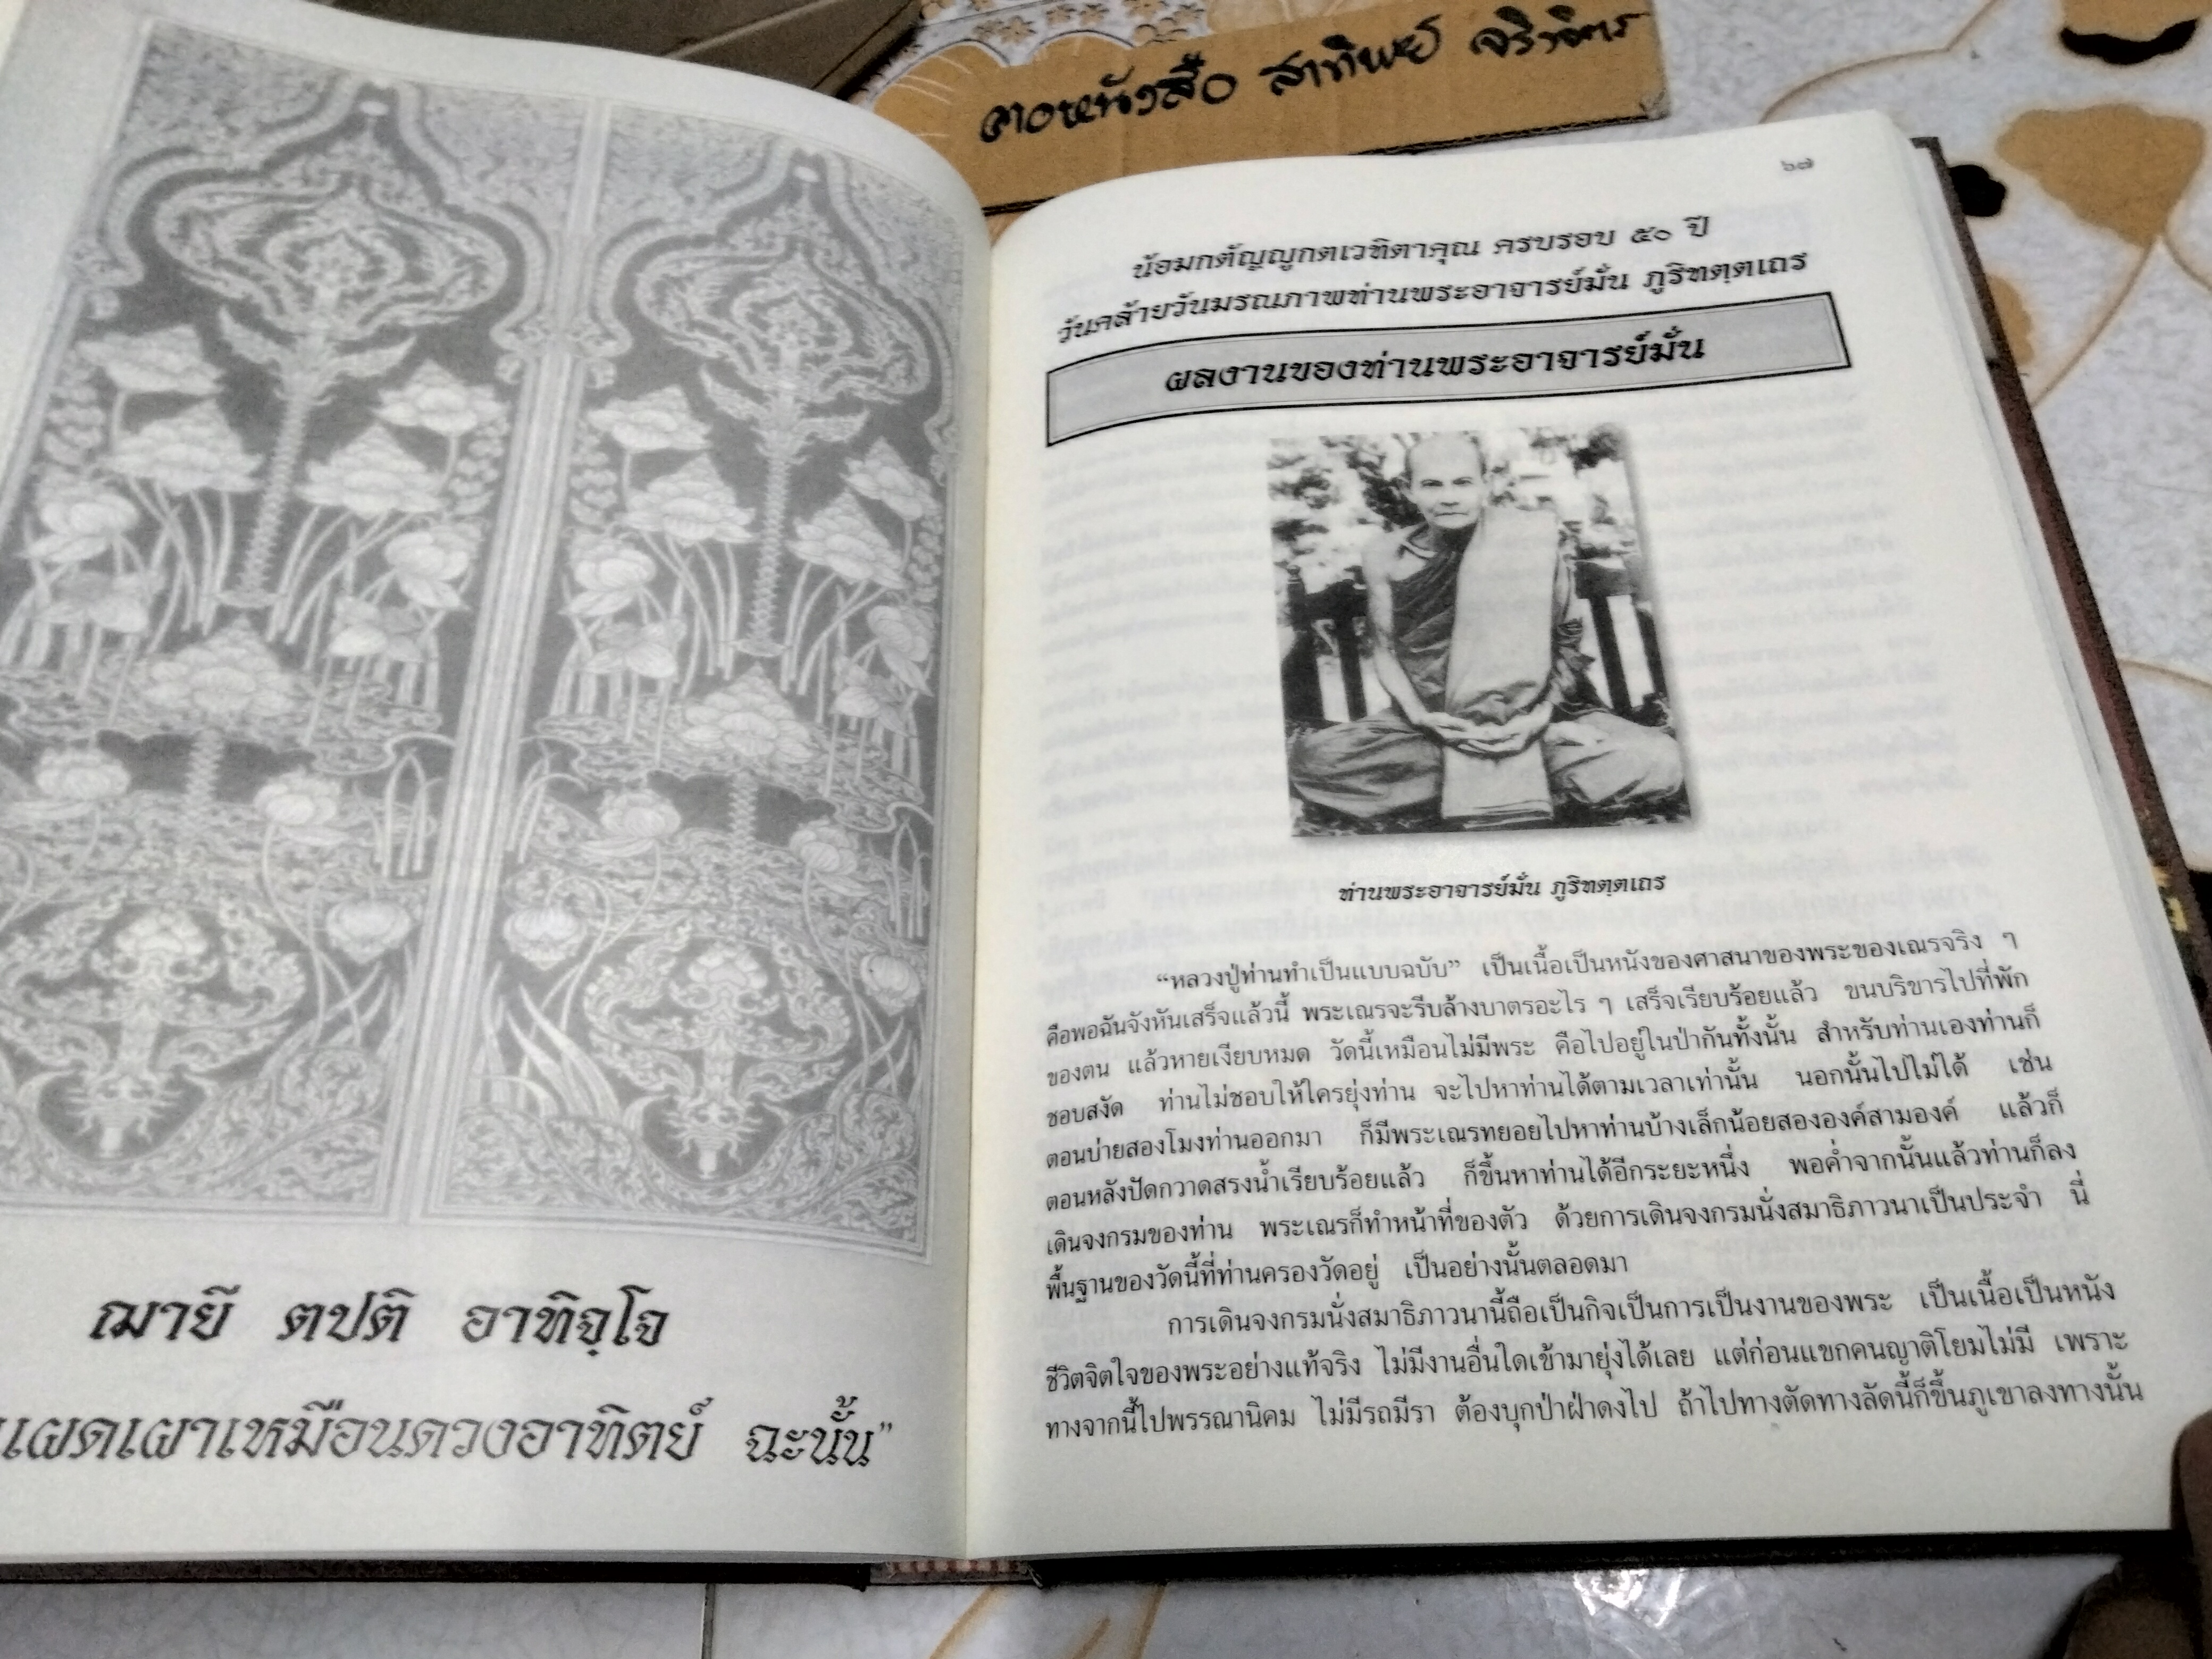 ฌายี ตปติ อาทิจฺโจ
แผดเผาเหมือนดวงอาทิตย์ ฉะนั้น”
สาทิพย์
๖๗
น้อมกตัญญูกตเวทิตาคุณ ครบรอบ ๕๐ ปี
วันคล้ายวันมรณภาพท่านพระอาจารย์มั่น ภูริทตฺตเถร
ผลงานของท่านพระอาจารย์มั่น
ท่านพระอาจารย์มั่น ภูริทตฺตเถร
“หลวงปู่ท่านทำเป็นแบบฉบับ” เป็นเนื้อเป็นหนังของศาสนาของพระของเณรจริง ๆ
คือพอฉันจังหันเสร็จแล้วนี้ พระเณรจะรีบล้างบาตรอะไร ๆ เสร็จเรียบร้อยแล้ว ขนบริขารไปที่พัก
ของตน แล้วหายเงียบหมด วัดนี้เหมือนไม่มีพระ คือไปอยู่ในป่ากันทั้งนั้น สำหรับท่านเองท่านก็
ชอบสงัด ท่านไม่ชอบให้ใครยุ่งท่าน จะไปหาท่านได้ตามเวลาเท่านั้น นอกนั้นไปไม่ได้ เช่น
ตอนบ่ายสองโมงท่านออกมา ก็มีพระเณรทยอยไปหาท่านบ้างเล็กน้อยสององค์สามองค์ แล้วก็
ตอนหลังปัดกวาดสรงน้ำเรียบร้อยแล้ว ก็ขึ้นหาท่านได้อีกระยะหนึ่ง พอค่ำจากนั้นแล้วท่านก็ลง
เดินจงกรมของท่าน พระเณรก็ทำหน้าที่ของตัว ด้วยการเดินจงกรมนั่งสมาธิภาวนาเป็นประจำ นี่
พื้นฐานของวัดนี้ที่ท่านครองวัดอยู่ เป็นอย่างนั้นตลอดมา
การเดินจงกรมนั่งสมาธิภาวนานี้ถือเป็นกิจเป็นการเป็นงานของพระ เป็นเนื้อเป็นหนัง
ชีวิตจิตใจของพระอย่างแท้จริง ไม่มีงานอื่นใดเข้ามายุ่งได้เลย แต่ก่อนแขกคนญาติโยมไม่มี เพราะ
ทางจากนี้ไปพรรณานิคม ไม่มีรถมีรา ต้องบุกป่าฝ่าดงไป ถ้าไปทางตัดทางลัดนี้ก็ขึ้นภูเขาลงทางนั้น